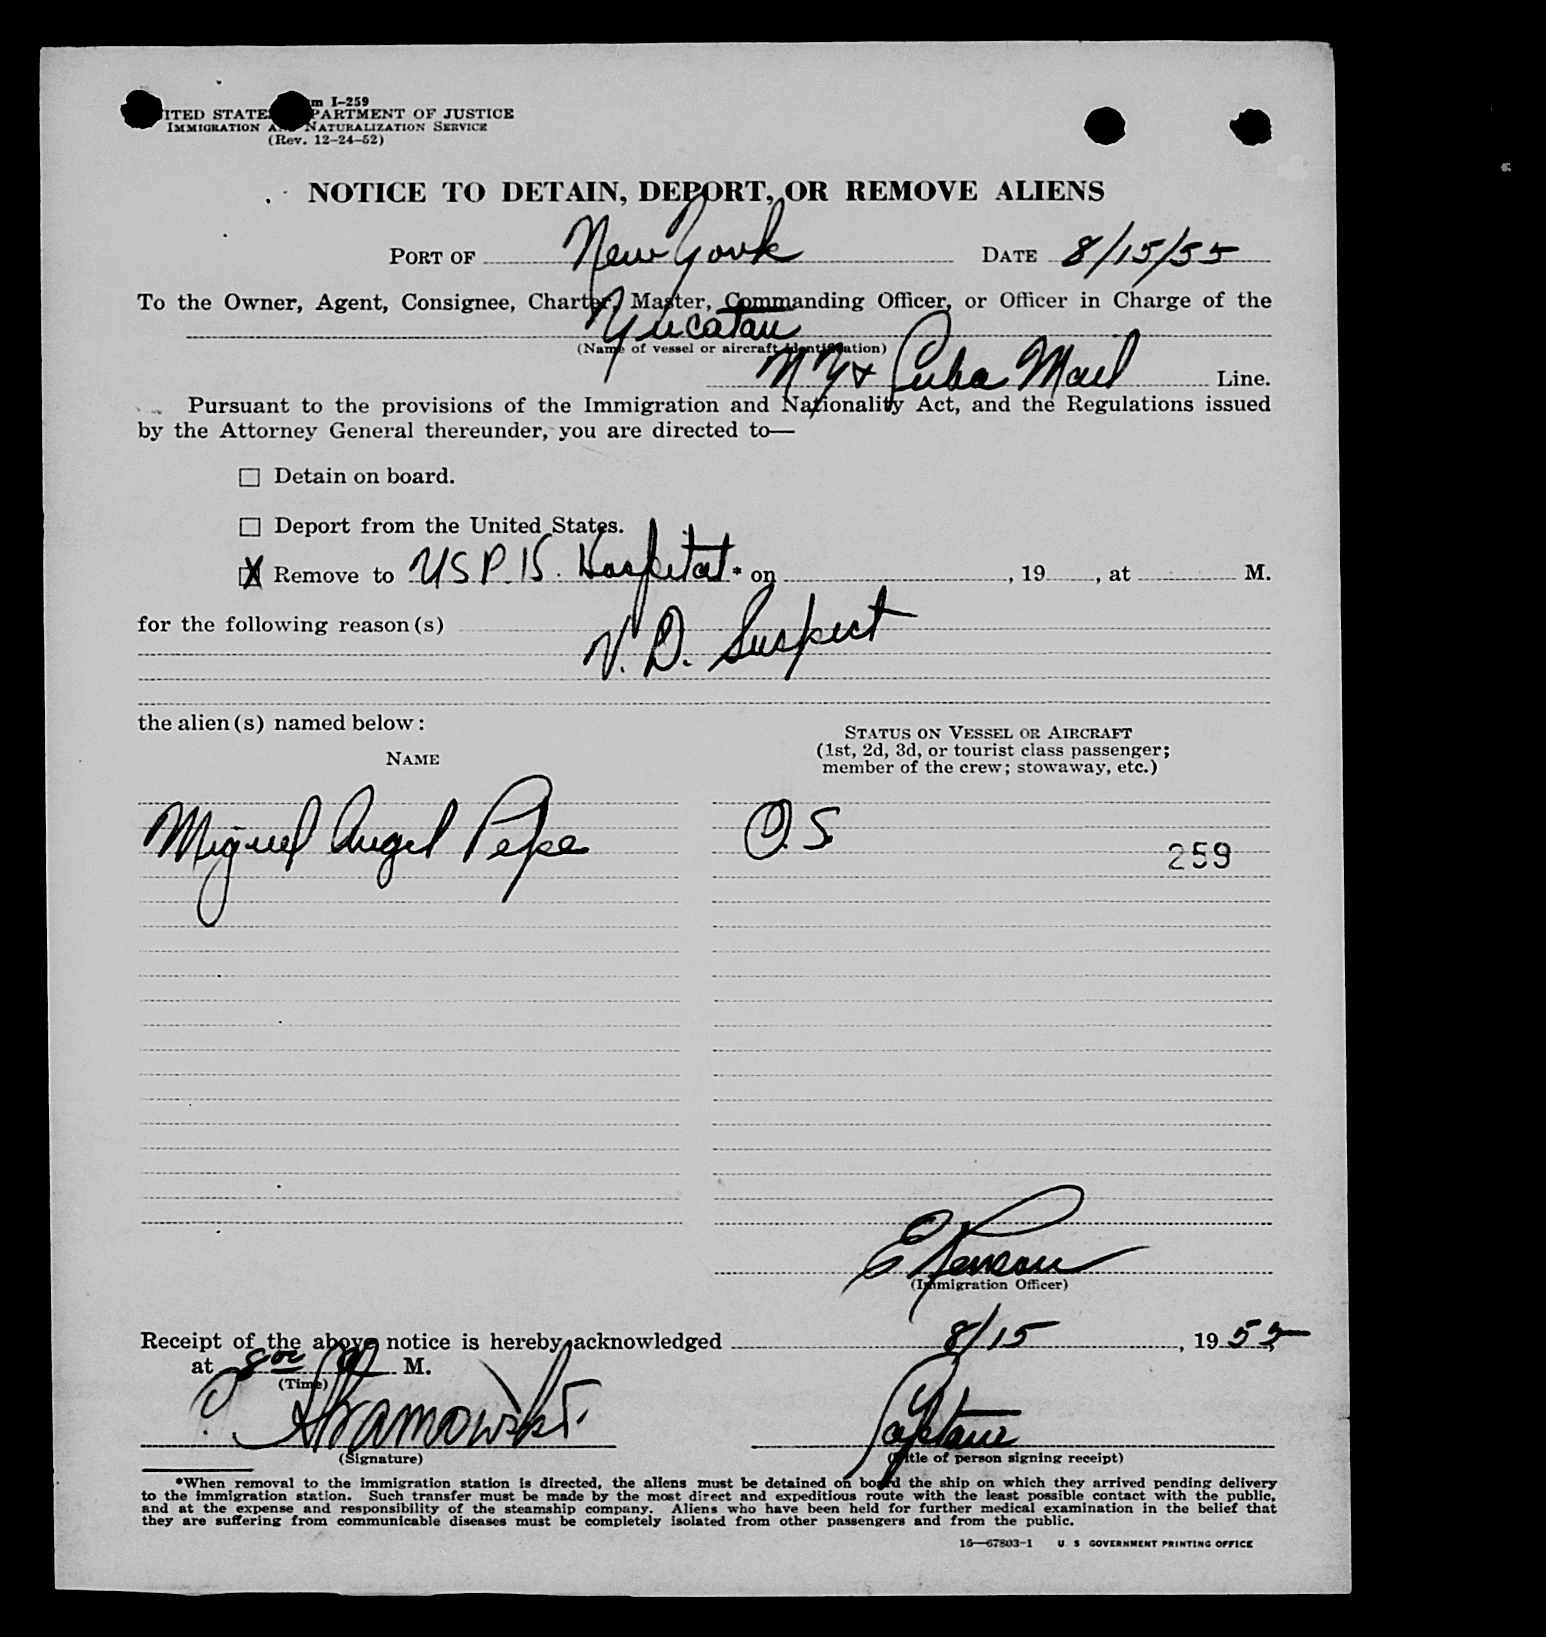 Form I-259
UNITED STATES DEPARTMENT OF JUSTICE
IMMIGRATION AND NATURALIZATION SERVICE
(Rev. 12-24-52)
NOTICE TO DETAIN, DEPORT, OR REMOVE ALIENS
PORT OF New York DATE 8/15/55
To the Owner, Agent, Consignee, Charter, Master, Commanding Officer, or Officer in Charge of the
Yucatan
(Name of vessel or aircraft identification)
N Y & Cuba Mail Line.
Pursuant to the provisions of the Immigration and Nationality Act, and the Regulations issued
by the Attorney General thereunder, you are directed to—
☐ Detain on board.
☐ Deport from the United States.
☒ Remove to USP.H. Hospital * on , 19 , at M.
for the following reason(s)
V. D. Suspect
the alien(s) named below:
NAME
STATUS ON VESSEL OR AIRCRAFT
(1st, 2d, 3d, or tourist class passenger;
member of the crew; stowaway, etc.)
Miguel Angel Pepe O.S.
259
E
(Immigration Officer)
Receipt of the above notice is hereby acknowledged 8/15, 1955
at 8 00 A M.
(Time)
Captain
(Signature) (Title of person signing receipt)
*When removal to the immigration station is directed, the aliens must be detained on board the ship on which they arrived pending delivery
to the immigration station. Such transfer must be made by the most direct and expeditious route with the least possible contact with the public,
and at the expense and responsibility of the steamship company. Aliens who have been held for further medical examination in the belief that
they are suffering from communicable diseases must be completely isolated from other passengers and from the public.
16—67803-1 U S GOVERNMENT PRINTING OFFICE